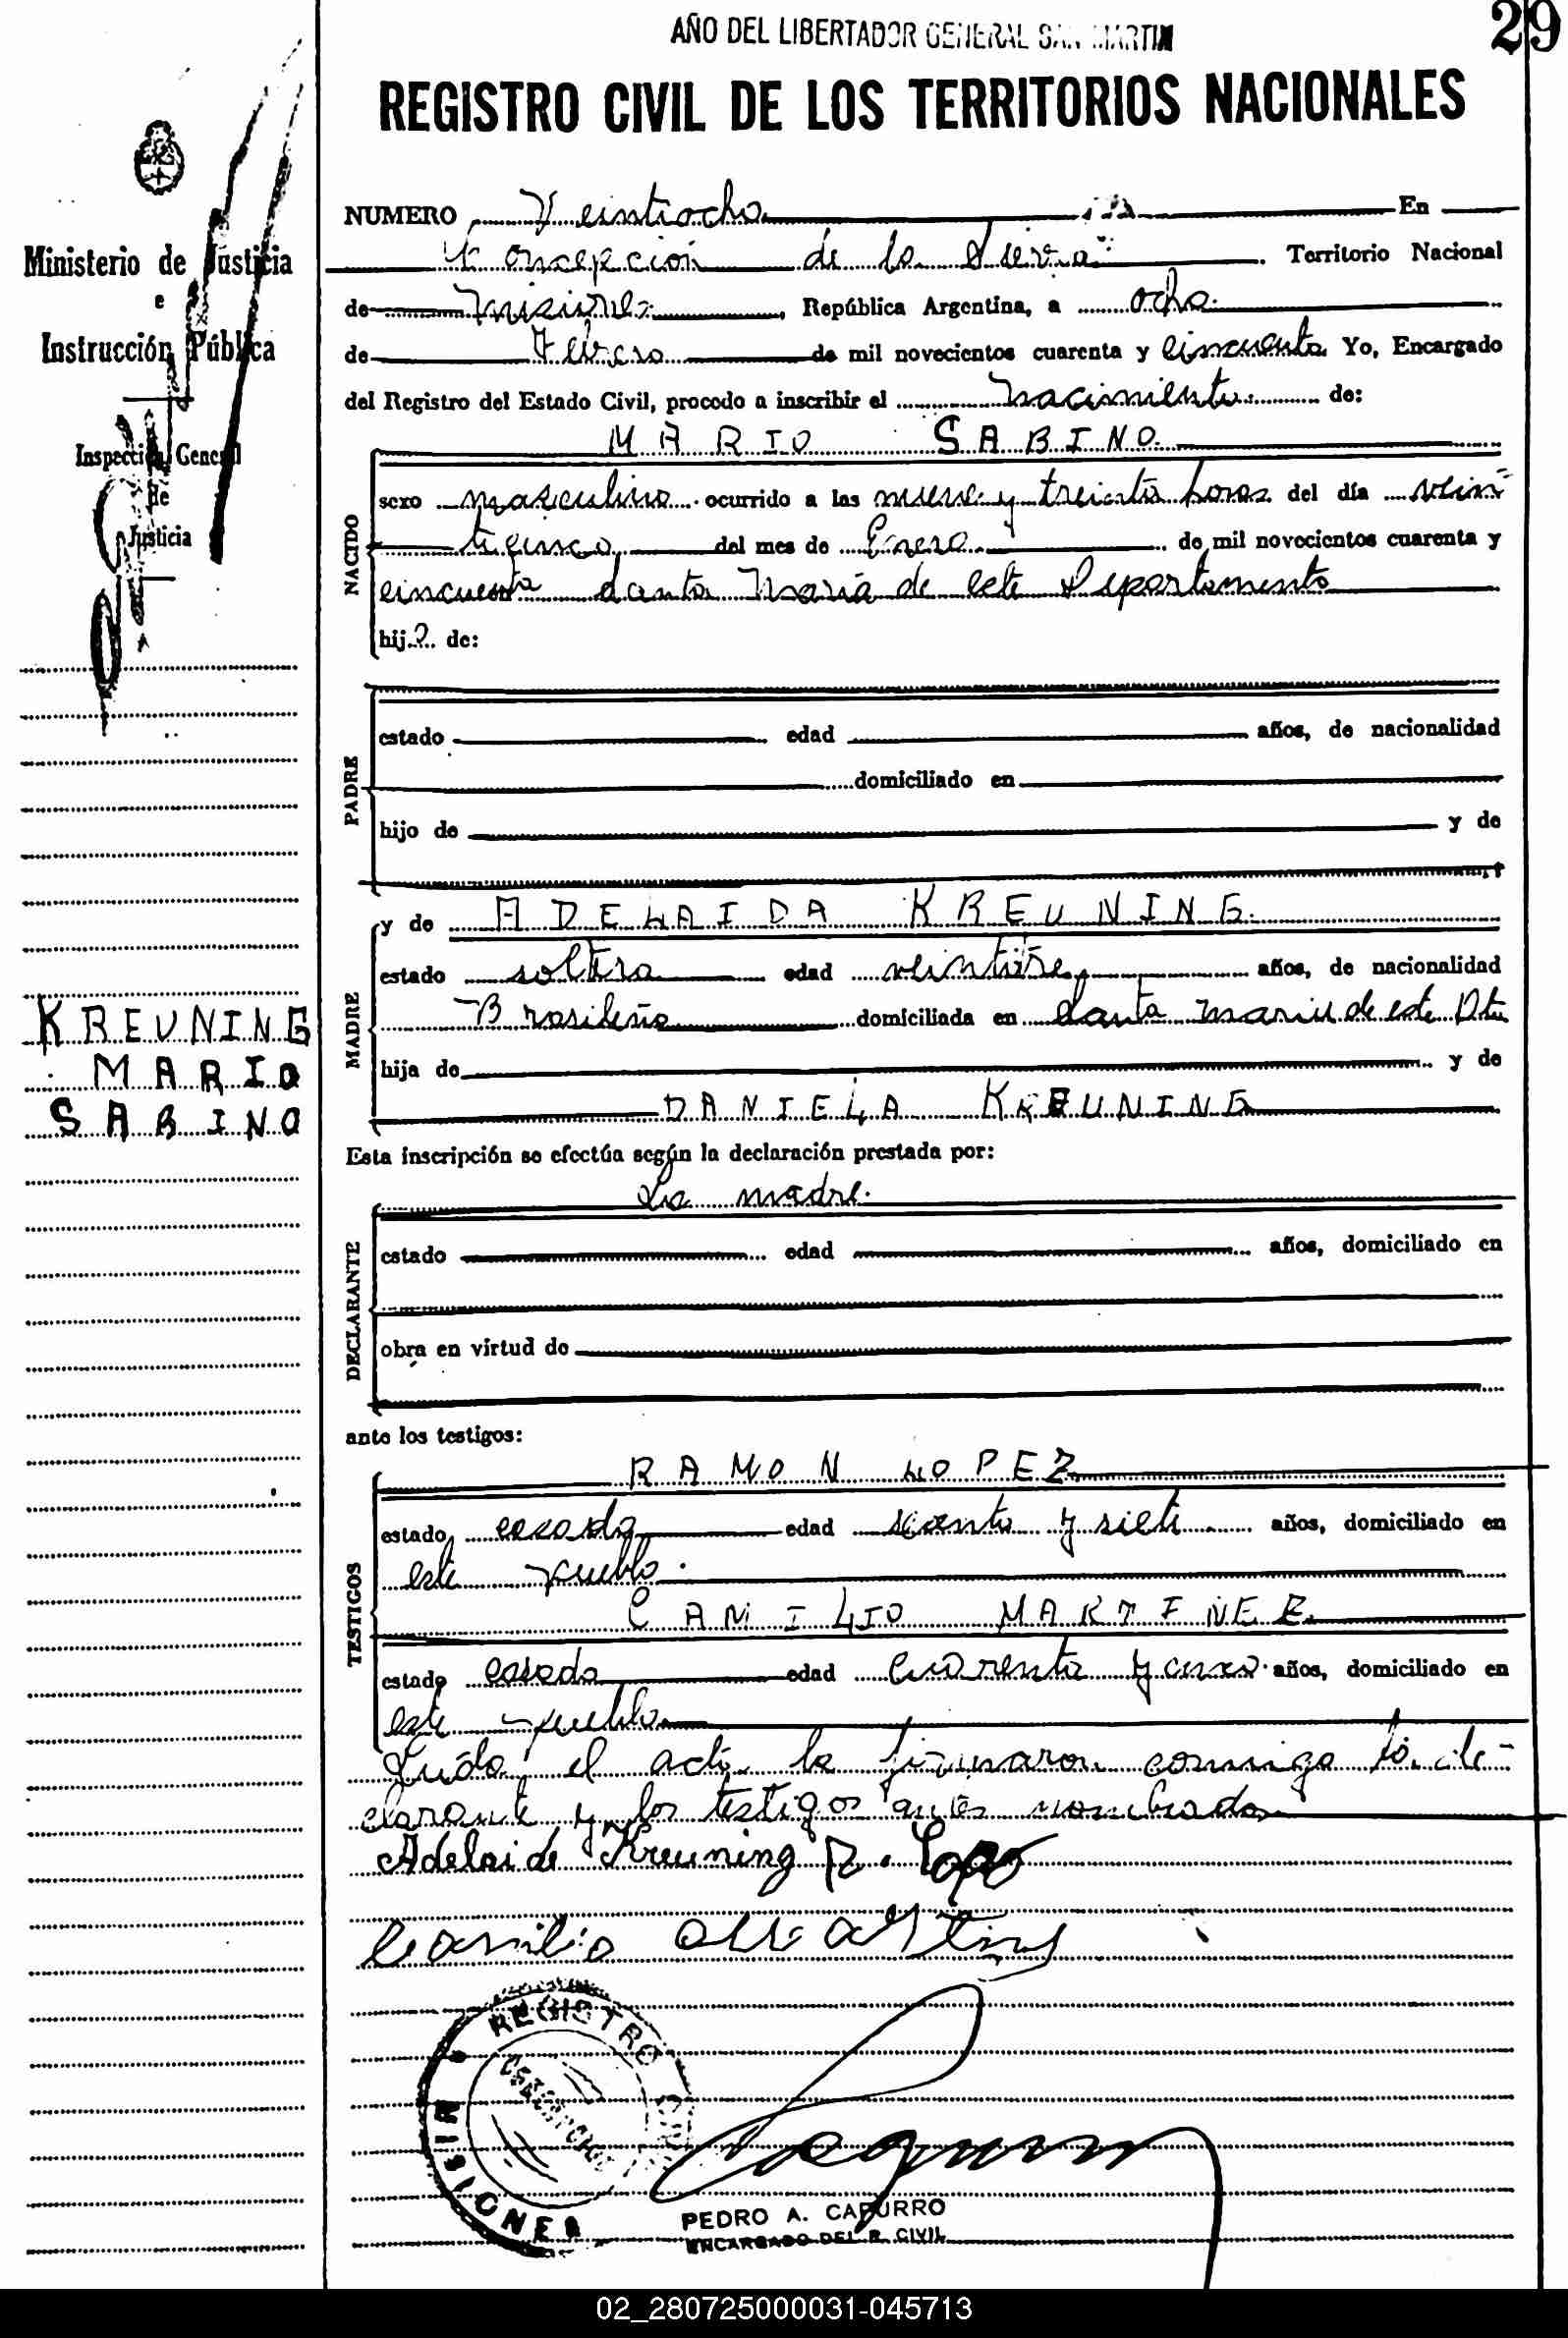 AÑO DEL LIBERTADOR GENERAL SAN MARTIN
29
REGISTRO CIVIL DE LOS TERRITORIOS NACIONALES
Ministerio de Justicia
e
Instrucción Pública
Inspección General
de
Justicia
KREUNING
MARIO
SABINO
NUMERO Veintiocho En
Concepción de la Sierra Territorio Nacional
de Misiones, República Argentina, a ocho
de Febrero de mil novecientos cuarenta y cincuenta Yo, Encargado
del Registro del Estado Civil, procedo a inscribir el nacimiento de:
MARIO SABINO
NACIDO
sexo masculino ocurrido a las nueve y treinta horas del día vein-
ticinco del mes de Enero de mil novecientos cuarenta y
cincuenta Santa María de este Departamento
hijo de:
PADRE
estado edad años, de nacionalidad
domiciliado en
hijo de y de
y de ADELAIDA KREUNING
MADRE
estado soltera edad veintitre años, de nacionalidad
Brasileña domiciliada en Santa Maria de este Dto
hija de y de
DANIELA KREUNING
Esta inscripción se efectúa según la declaración prestada por:
La madre.
DECLARANTE
estado edad años, domiciliado en
obra en virtud de
ante los testigos:
RAMON LOPEZ
TESTIGOS
estado casado edad y siete años, domiciliado en
este pueblo.
CAMILIO MARTINEZ
estado casado edad cuarenta y años, domiciliado en
este pueblo
Leída el acta la firmaron conmigo la de-
clarante y los testigos antes nombrados
Adelaide Kreuning R. Lopez
Camilio Martinez
REGISTRO CIVIL
MISIONES
CONCEPCION
PEDRO A. CAPURRO
ENCARGADO DEL R. CIVIL
02_280725000031-045713